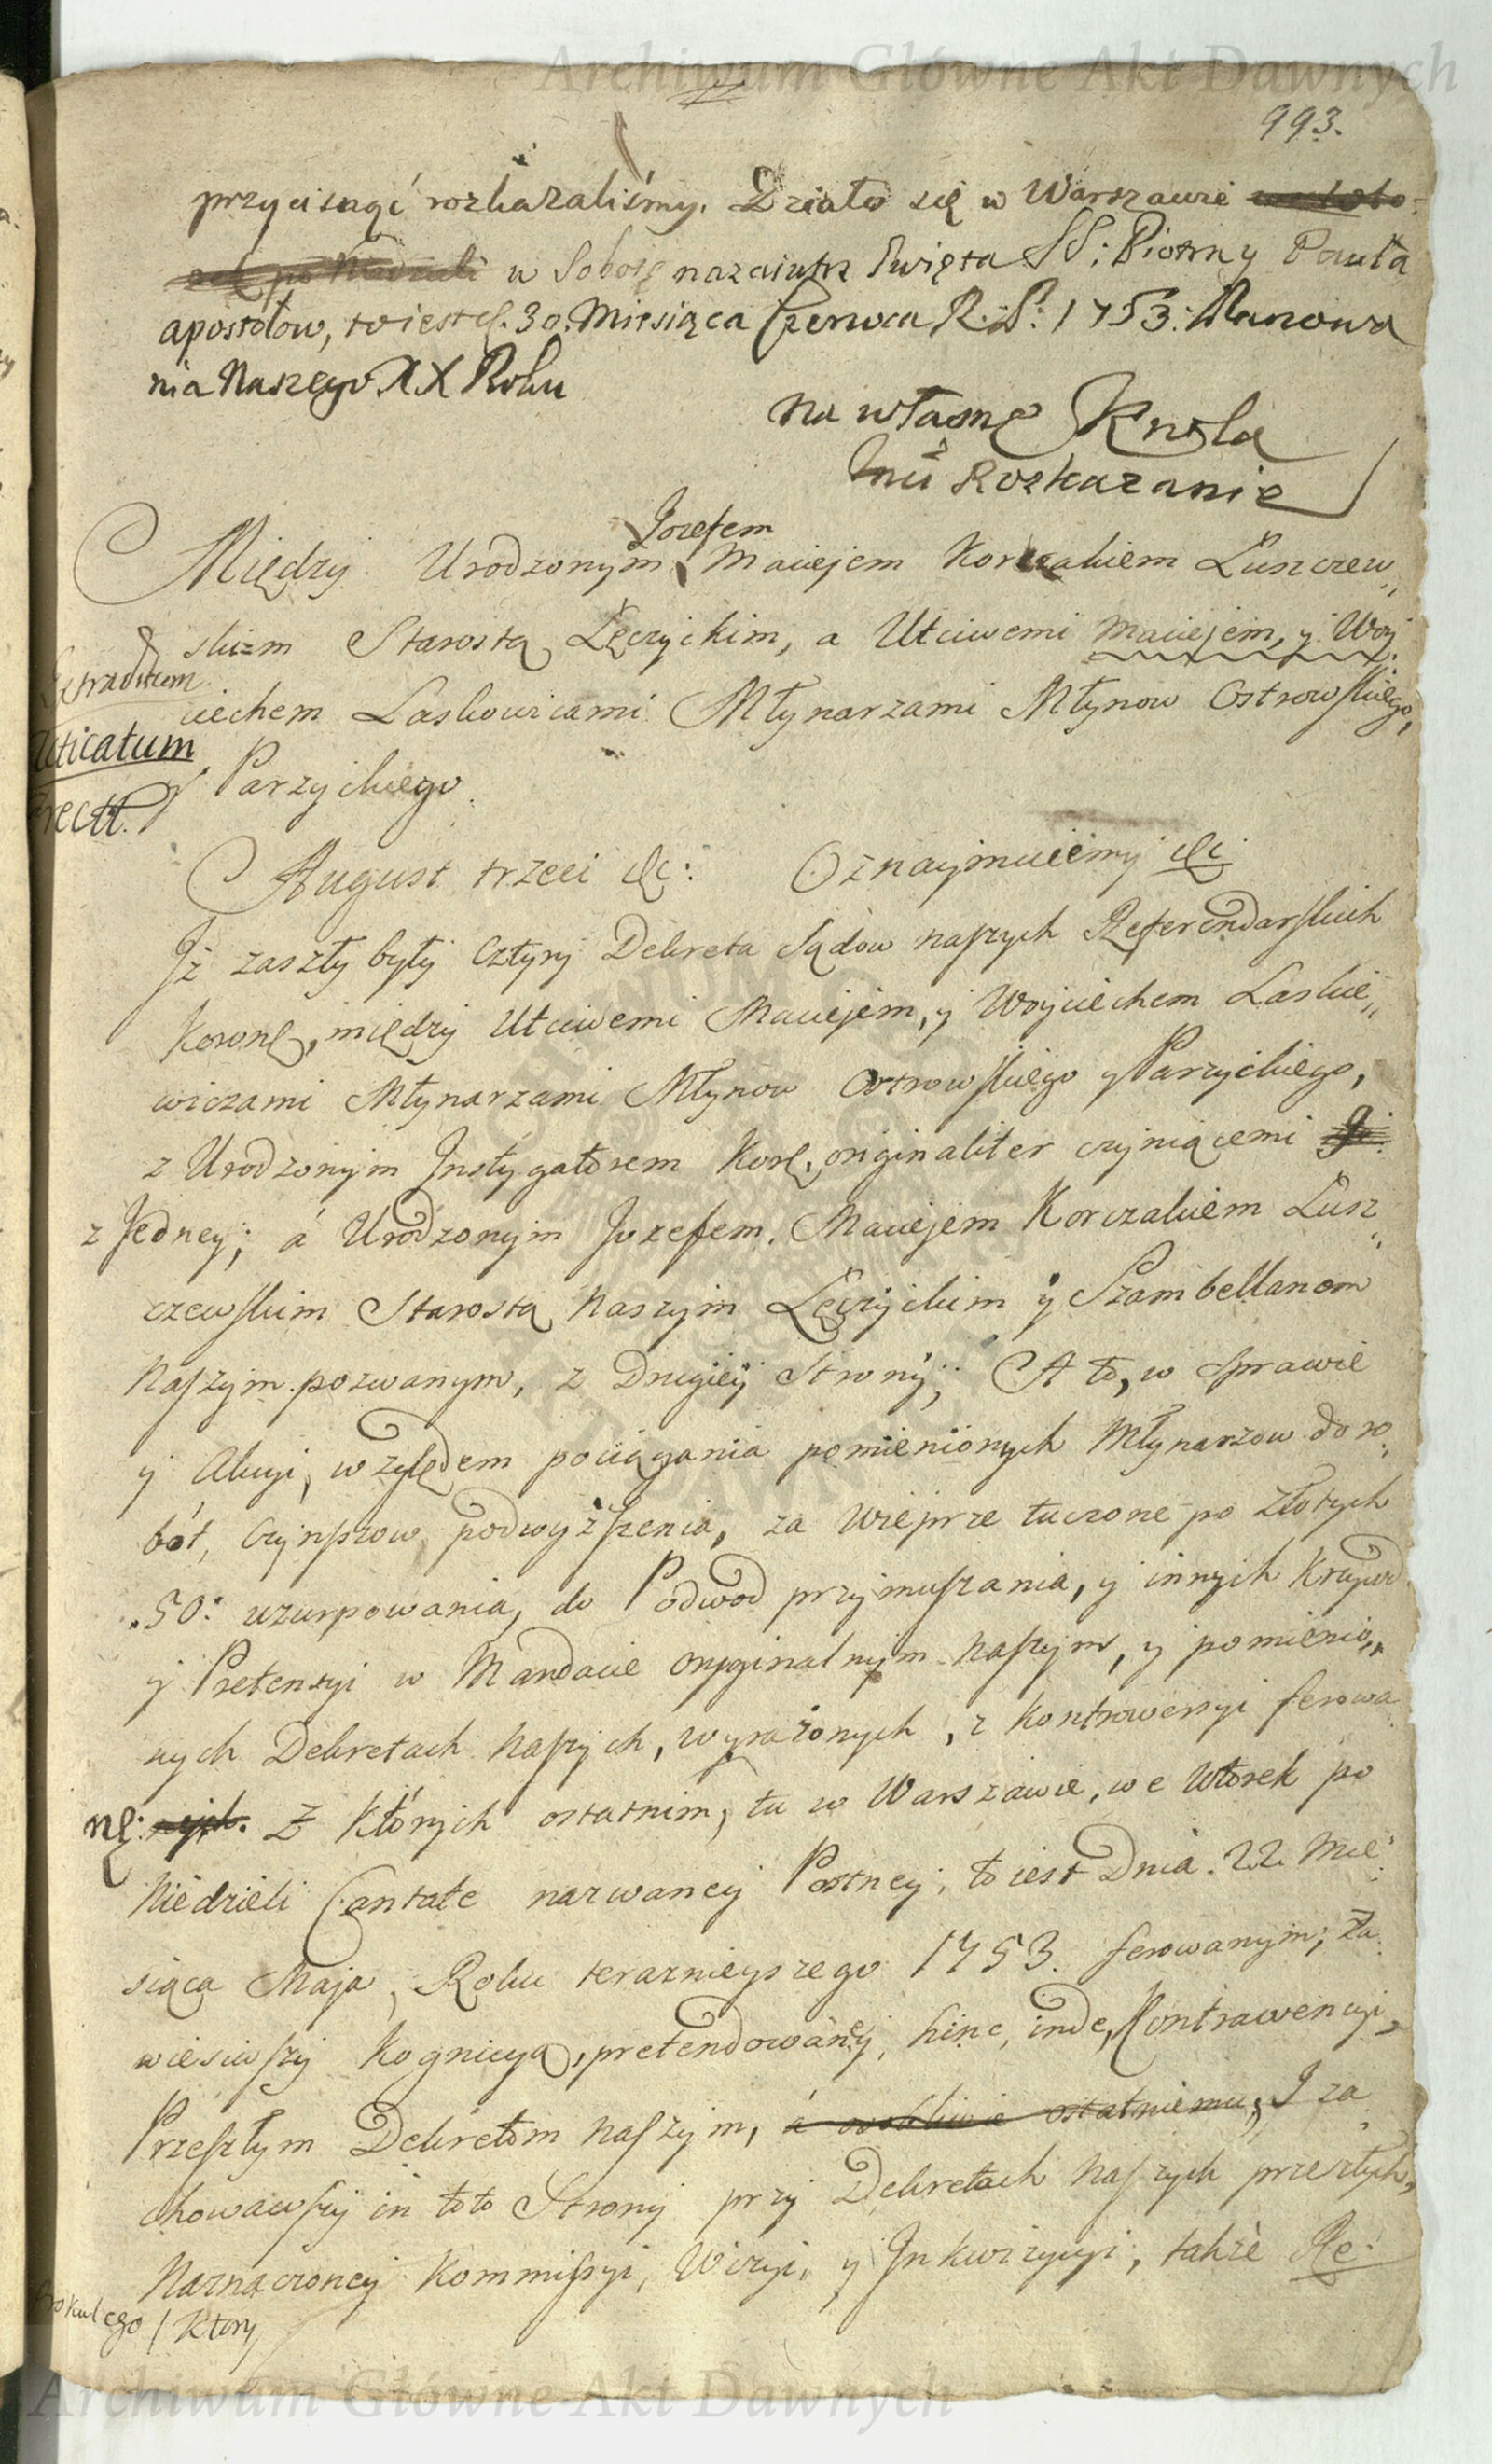 Archiwum Główne Akt Dawnych
993.
przycisnąć rozkazaliśmy. Działo się w Warszawie
w Sobotę nazaiutrz Swięta SS: Piotra y Pawła
apostołow, to iest d. 30. Miesiąca Czerwca R. P. 1753. Panowa
nia Naszego XX Roku
na własne Krola
Jmci Rozkazanie
Jozefem
Między Urodzonym Maciejem Korczakiem Łuszczew„
skim Starostą Łęczyckim, a Utciwemi Maciejem, y Woy
ciechem Laskowicami Młynarzami Młynow Ostrowskiego,
y Parzyckiego.
Extraditum
cticatum
rectt.
August trzeci etc: Oznaymuiemy etc
Iż zaszły były cztyry Dekreta Sądow naszych Referendarskich
Koronę, między Utciwemi Maciejem, y Woyciechem Laskie„
wiczami Młynarzami Młynow Ostrowskiego y Parzyckiego,
z Urodzonym Instygatorem Korę. originaliter czyniącemi
z Jedney; á Urodzonym Jozefem Maciejem Korczakiem Łusz„
czewskim Starostą Naszym Łęczyckim y Szambellanem
Naszym pozwanym, z Drugiey Strony; A to, w Sprawie
y Akcyi, względem pociągania pomienionych Młynarzow do ro„
bót, Czynszow podwyższenia, za Wieprze tuczone po Złotych
50: uzurpowania, do Podwod przymuszania, y innych Krzywd
y Pretensyi w Mandacie oryginalnym Naszym, y pomienio„
nych Dekretach Naszych, wyrażonych, z Kontrowersyi ferowa
nę: nych. Z Których ostatnim, tu w Warszawie, we Wtorek po
Niedzieli Cantate nazwaney Postney, to iest Dnia. 22. Mie„
siąca Maja, Roku teraznieyszego 1753. ferowanym; Za„
wiesiwszy Kognicyą, pretendowaney, hinc, inde, Kontrawencyi,
Przeszłym Dekretom Naszym, á osobliwie ostatniemu, I za„
chowawszy in toto Strony przy Dekretach Naszych przeszłych,
Naznaczoney Kommissyi, Wizyi, y Inkwizycyi, także Re:
ego / Ktory
Archiwum Główne Akt Dawnych